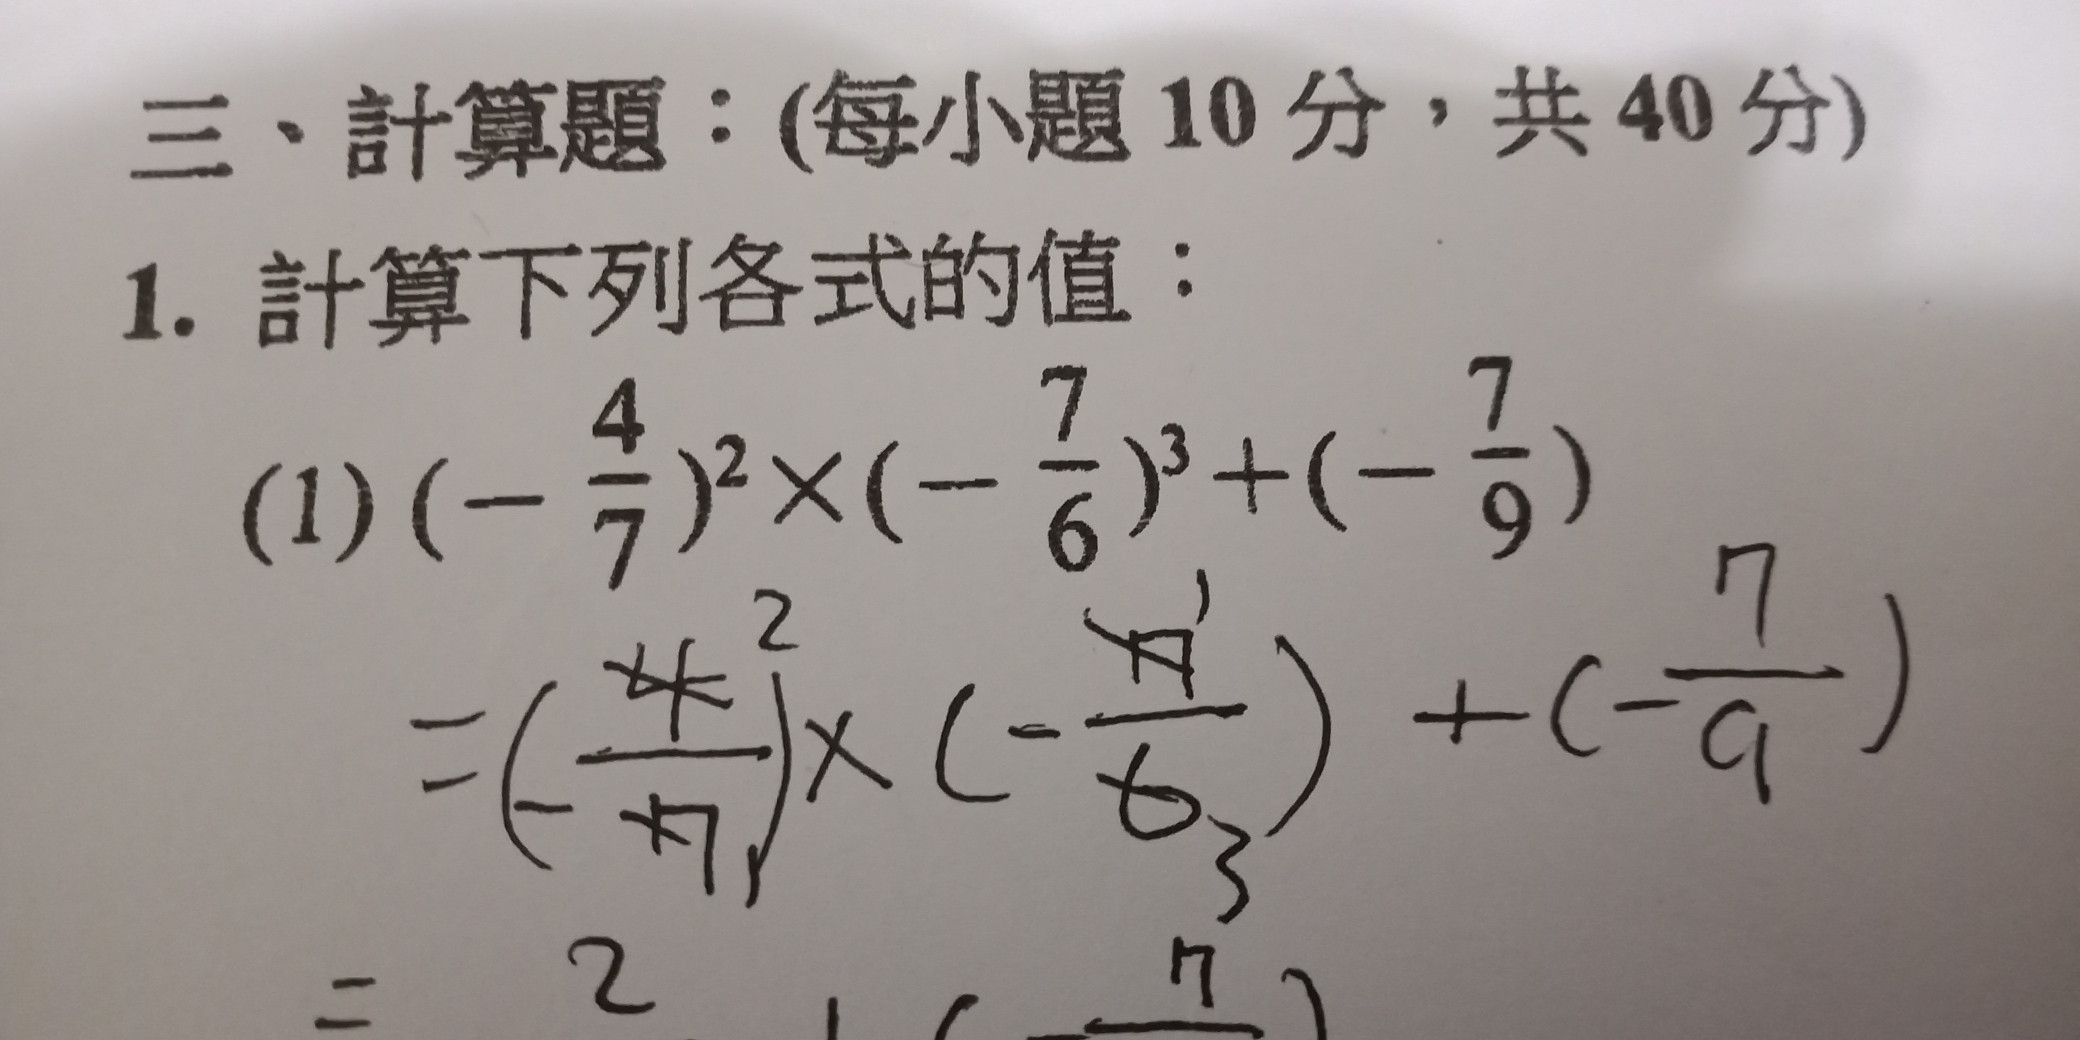 三、計算題：(每小題 10 分，共 40 分)
1. 計算下列各式的值：
(1) (－4/7)²×(－7/6)³＋(－7/9)
=(-4/7)×(-7/6)+(-7/9) 2 1 1 3
= 2 + (-7